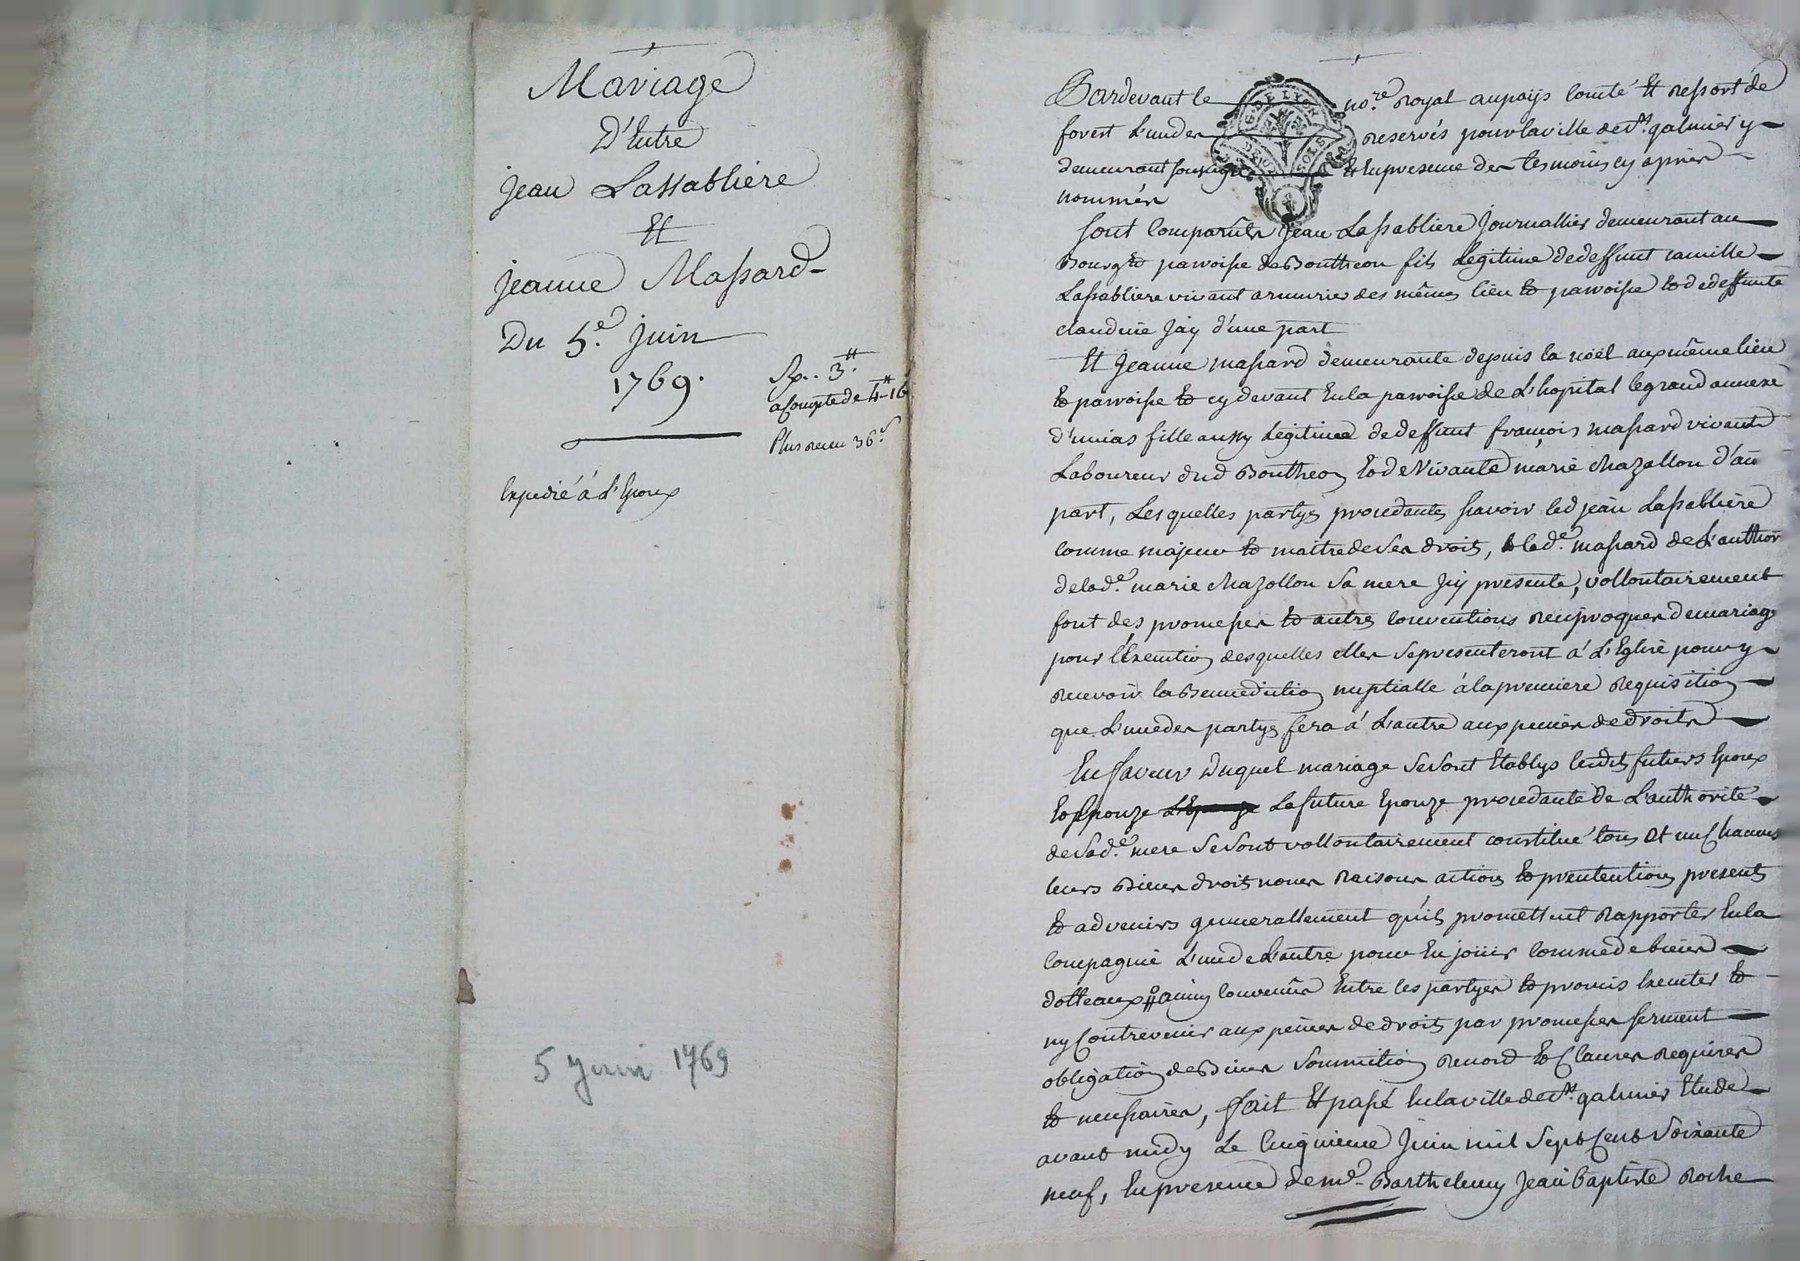 Mariage
D'Entre
jean Lassabliere
Et
jeanne Massard
Du 5.e juin
1769.
3.tt
acompte de 4tt 16
Plus receu 36.s
Expedié á L'Epoux
5 juin 1769
Pardevant le no.re royal au pays comté Et ressort de
forest L'un des reservés pour la ville de St. galmier y
demeurant soussigné Et En presence des tesmoins cy aprés
nommés
G. DE LYON
DEUX SOLS
Sont Comparûs Jean Lassabliere Journallier demeurant au
Bourg Et parroisse de Boutheon fils Legitime de deffunt camille
Lassabliere vivant armurier des mêmes lieu Et parroisse Et de deffunte
claudine Jay d'une part
Et Jeanne massard demeurante depuis la noël aux même lieu
Et parroisse Et cy devant En la parroisse de L'hopital le grand annexe
d'unias fille aussy Legitime de deffunt françois massard vivant
Laboureur dud Boutheon Et de Vivante marie Chazallon d'au
part, Lesquelles partyes procedantes sçavoir led jean Lassabliere
comme majeur Et maitre de Ses droits, & lad.e massard de L'author
de lad.e marie Chazollon Sa mere Jcy presente, vollontairement
font des promesses Et autres conventions reciproques de mariage
pour l'Execution desquelles elles Se presenteront á L'Eglise pour y
recevoir la Bennediction nuptialle á la premiere requisition
que L'une des partyes fera á L'autre aux peines de droits
En faveur duquel mariage Se Sont Etablys lesdits futurs Epoux
Et Epouze La future Epouze procedante de L'authorité
de Sad.e mere Se Sont vollontairement constitué tous Et uns chacuns
leurs Biens droits noms Raisons actions Et pretentions presents
Et advenirs generallement qu'ils promettent Rapporter En la
Compagnie L'un de L'autre pour En jouir comme de biens
dotteaux ainsy convenûs Entre les partyes Et promis Executer Et
ny Contrevenir aux peines de droits par promesses serment
obligation de Biens Soumition renond Et Clauses requises
Et necessaires, fait Et passé En la ville de St. galmier Etude
avant midy Le Cinquieme Juin mil Sept Cent Soixante
neuf, En presence de me. Barthelemy Jean Baptiste Roche